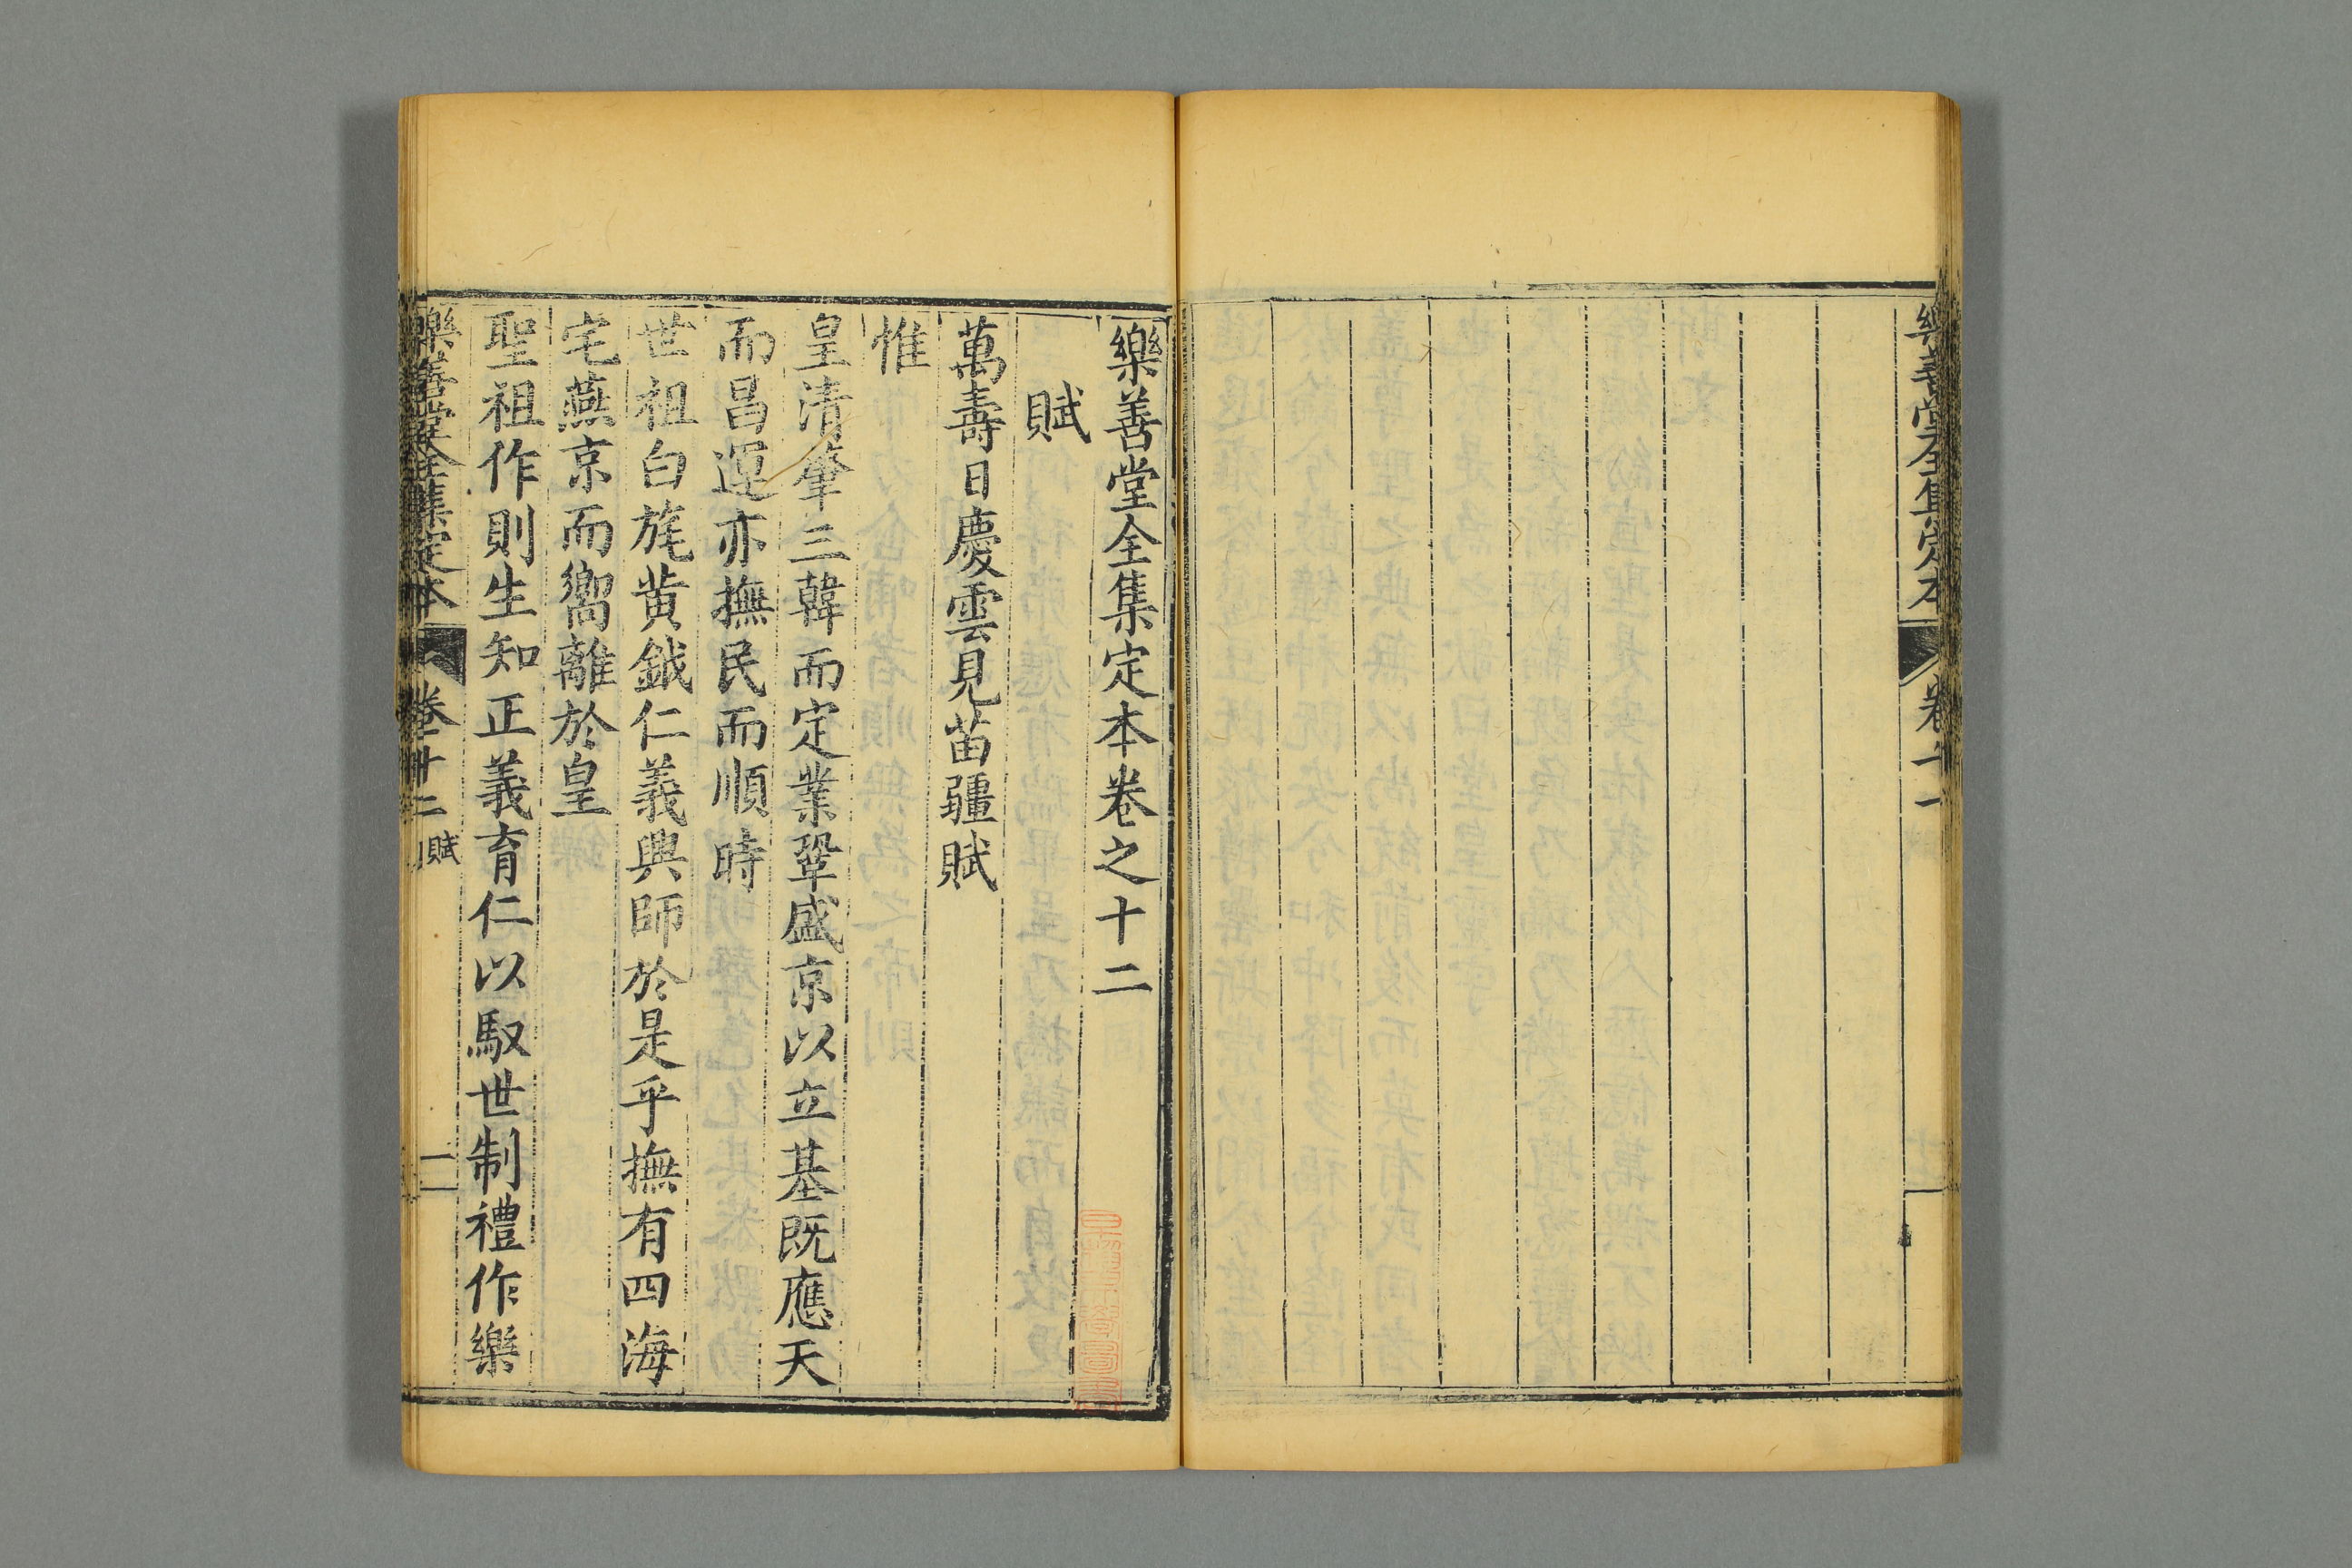 樂善堂全集定本
卷十一
樂善堂全集定本卷之十二
賦
萬壽日慶雲見苗疆賦
惟
皇清肇三韓而定業鞏盛京以立基既應天
而昌運亦撫民而順時
世祖白旄黃鉞仁義興師於是乎撫有四海
宅燕京而嚮離於皇
聖祖作則生知正義育仁以馭世制禮作樂
樂善堂全集定本
卷十二
賦
一